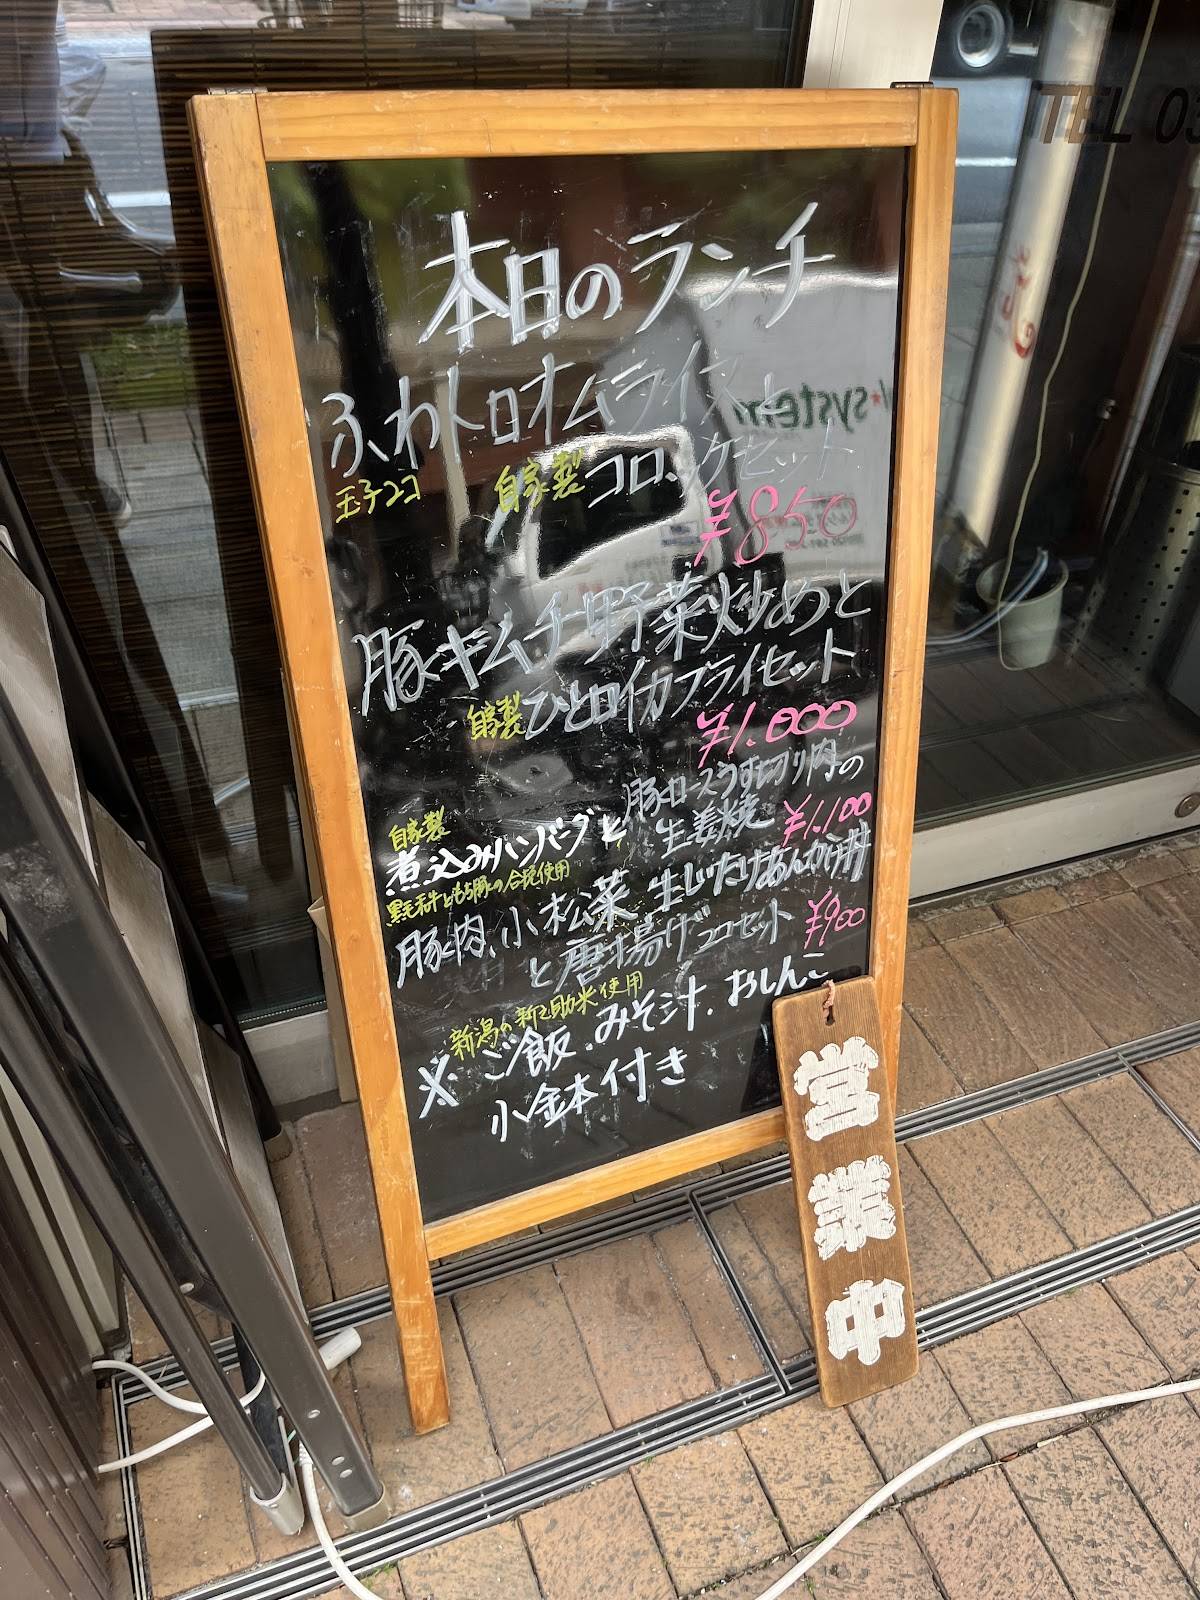 本日のランチ
ふわトロオムライスと
玉子2コ
自家製コロッケセット
¥850
豚キムチ野菜炒めと
自家製ひとロイカフライセット
¥1.000
自家製
煮込みハンバーグと豚ロースうす切り肉の
生姜焼 ¥1.100
黒毛和牛ともち豚の合挽使用
豚肉、小松菜 生しいたけあんかけ丼
と唐揚げ2コセット ¥900
新潟の新之助米使用
※ ご飯.みそ汁.おしんこ
小鉢付き
営業中
TEL 03
system